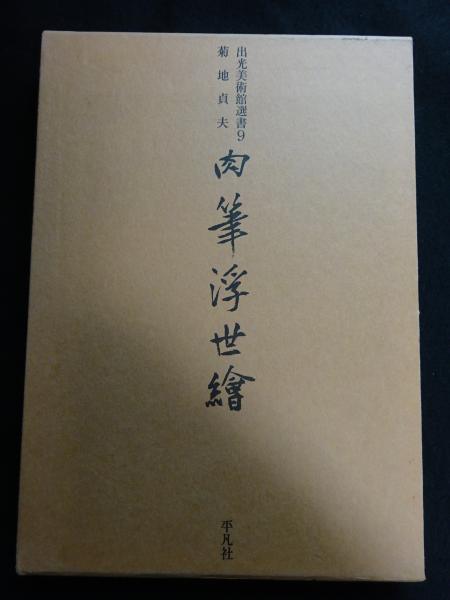 出光美術館選書9
菊地貞夫
肉筆浮世繪
平凡社